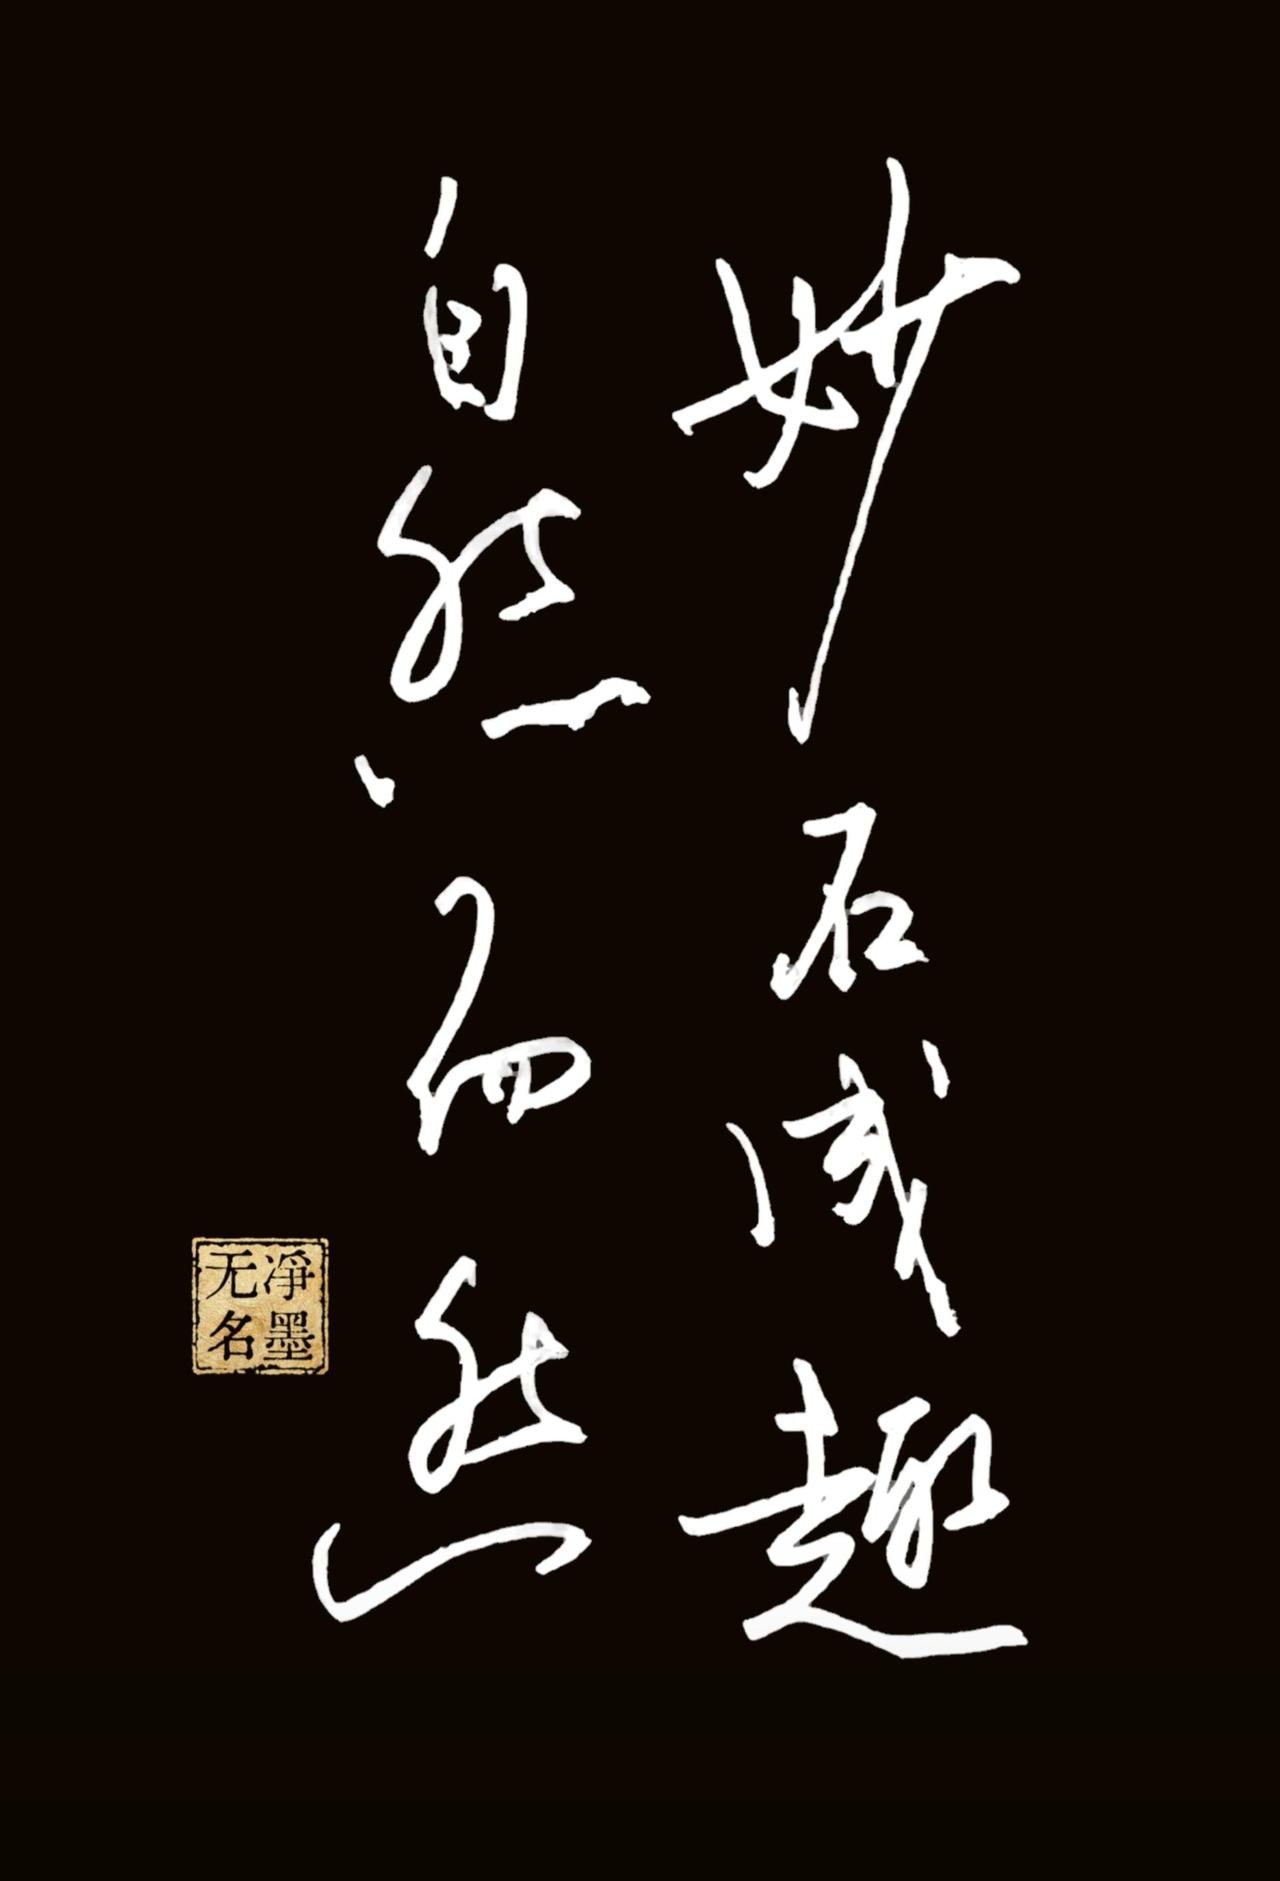 妙石成趣
自然而然
净墨
无名